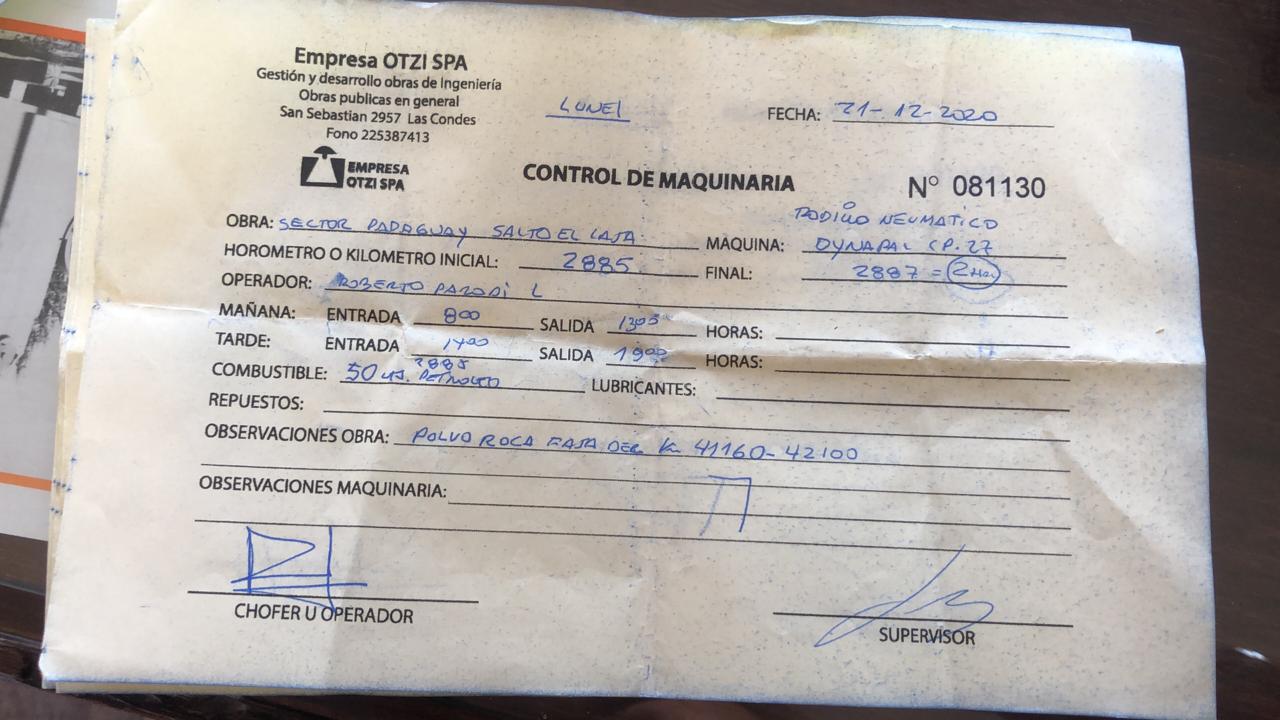 Empresa OTZI SPA
Gestión y desarrollo obras de Ingeniería
Obras publicas en general
San Sebastian 2957 Las Condes
Fono 225387413
EMPRESA
OTZI SPA
LUNES
FECHA: 21-12-2020
CONTROL DE MAQUINARIA
N° 081130
RODILLO NEUMATICO
OBRA: SECTOR PARAGUAY SALTO EL LAJA MÁQUINA: DYNAPAC CP.27
HOROMETRO O KILOMETRO INICIAL: 2885 FINAL: 2887 = 2 HRS
OPERADOR: ROBERTO PARODI L
MAÑANA: ENTRADA 800 SALIDA 1300 HORAS:
TARDE: ENTRADA 1400 SALIDA 1900 HORAS:
2885
COMBUSTIBLE: 50 LTS. PETROLEO LUBRICANTES:
REPUESTOS:
OBSERVACIONES OBRA: POLVO ROCA FAJA DER. Km 41160-42100
OBSERVACIONES MAQUINARIA:
CHOFER U OPERADOR
SUPERVISOR